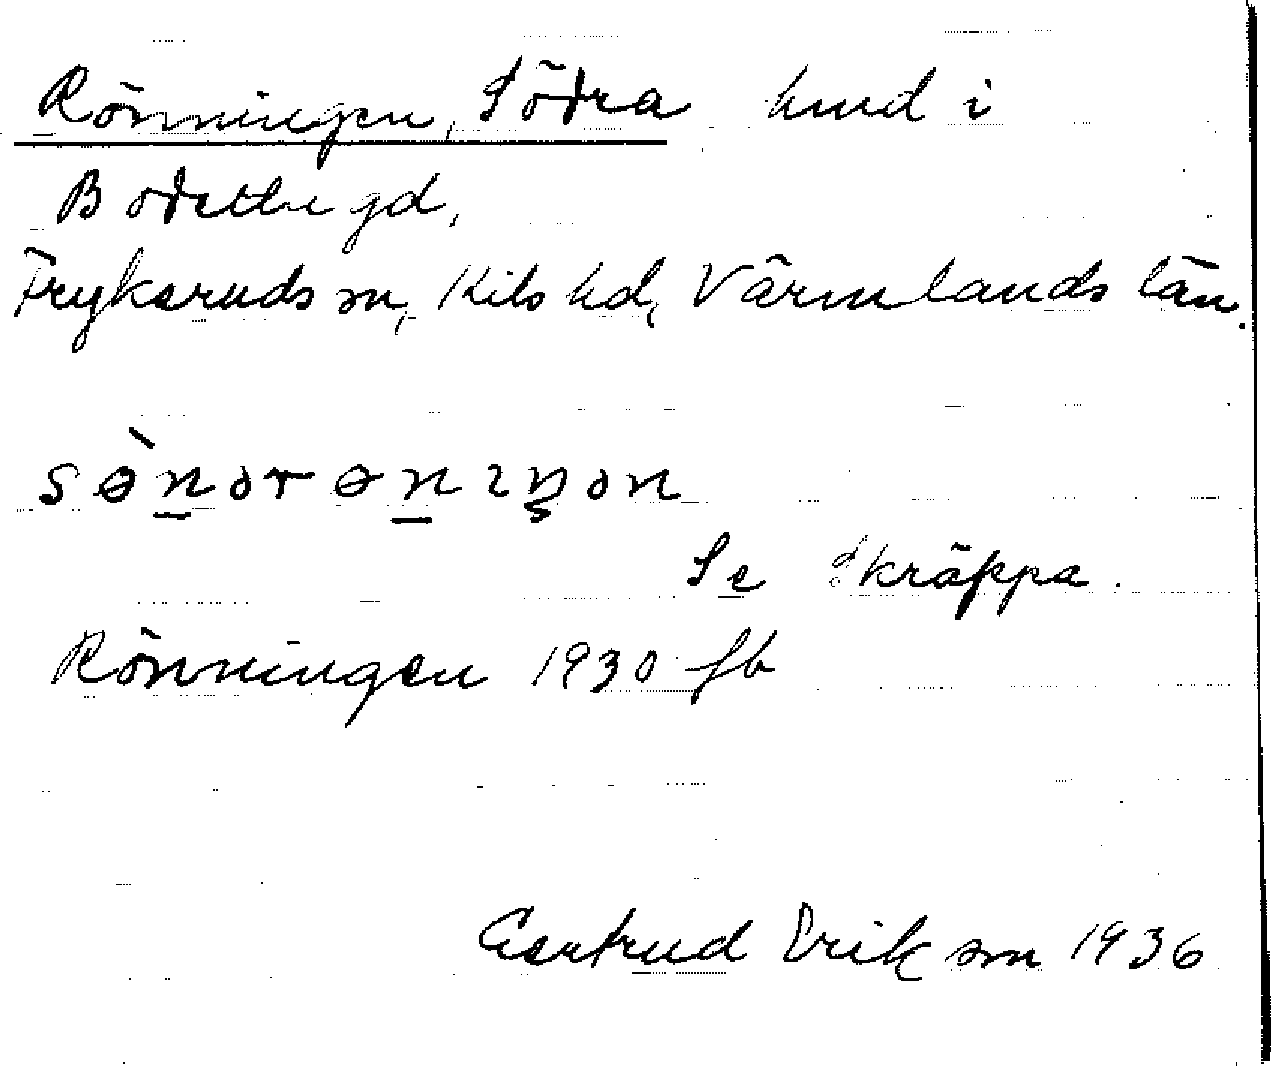 Rönningen, Södra hmd i
Bodetbygd,
Frykeruds sn, Kils hd, Värmlands län.
Se Skräppa.
Rönningen 1930 fb
Gertrud Erikson 1936